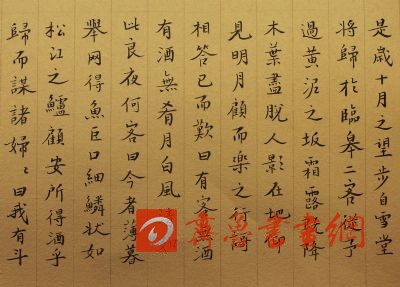 是歲十月之望步自雪堂
將歸於臨皋二客從予
過黃泥之坂霜露既降
木葉盡脫人影在地仰
見明月顧而樂之行
相答已而歎曰有客無酒
有酒無肴月白風
此良夜何客曰今者薄暮
舉网得魚巨口細鱗狀如
松江之鱸顧安所得酒乎
歸而謀諸婦〻曰我有斗